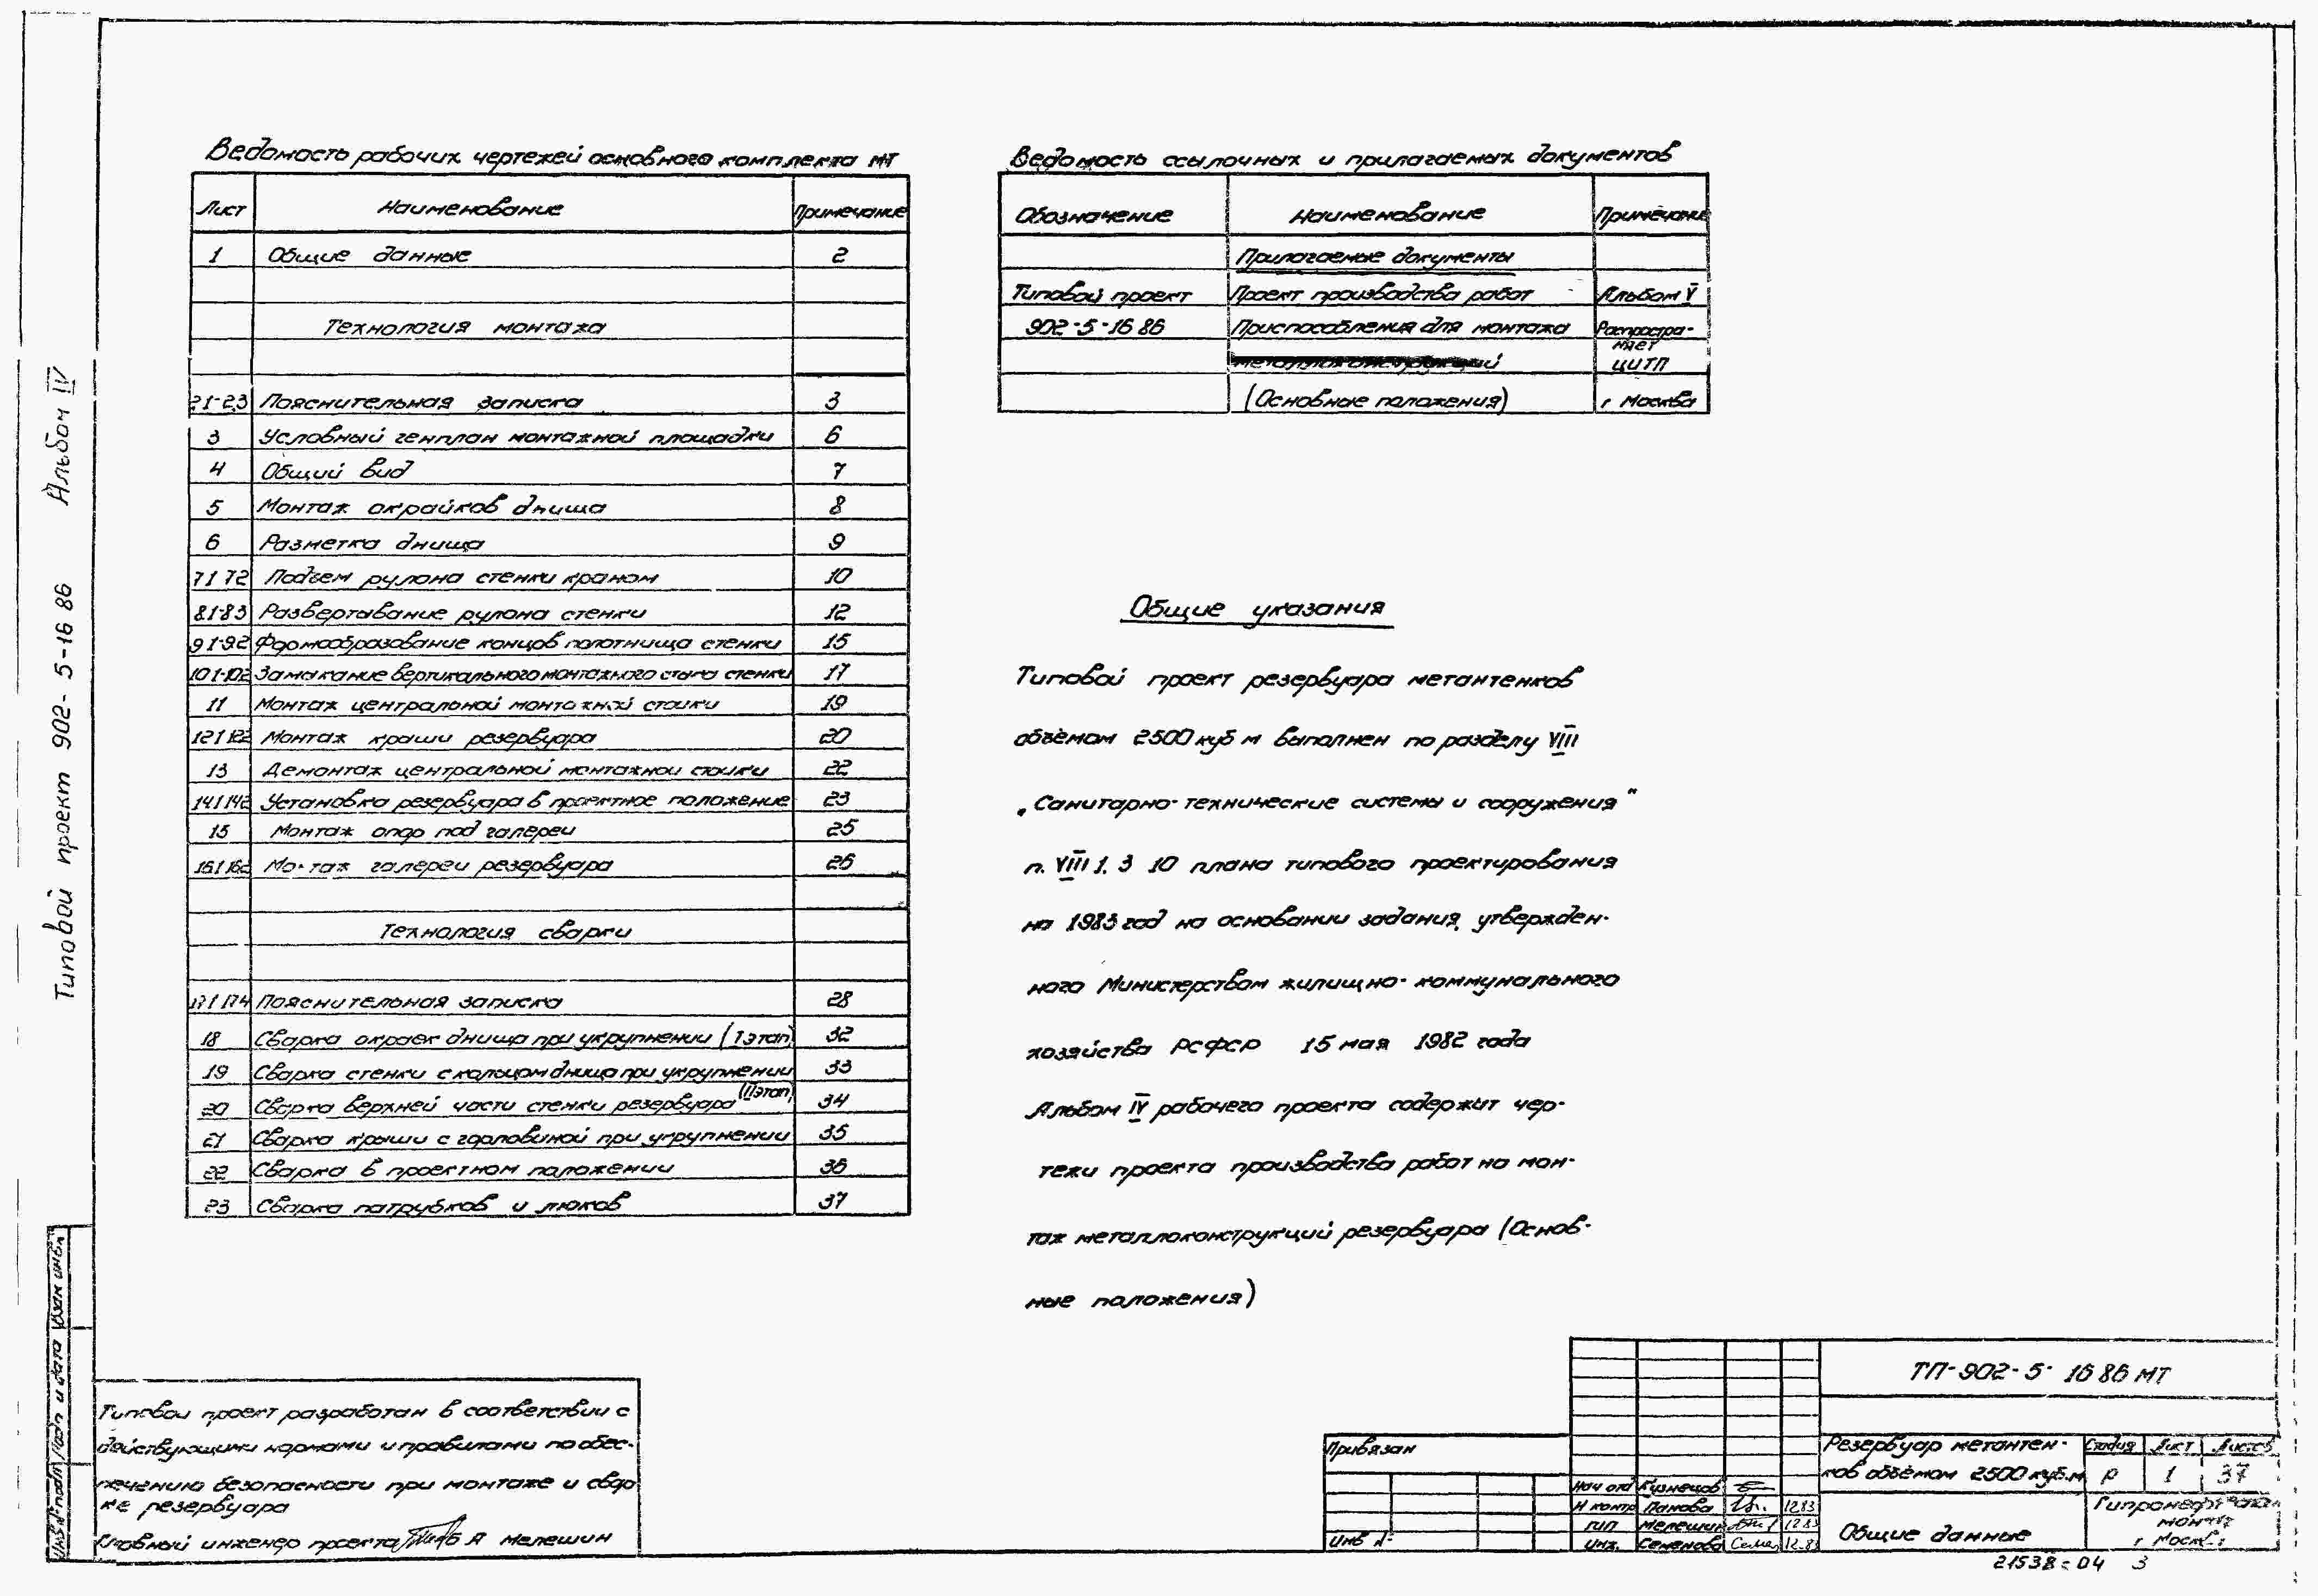 Ведомость рабочих чертежей основного комплекта МТ
Лист Наименование Примечание
1 Общие данные 2
Технология монтажа
2.1-2.3 Пояснительная записка 3
3 Условный генплан монтажной площадки 6
4 Общий вид 7
5 Монтаж окрайков днища 8
6 Разметка днища 9
7.1 7.2 Подъем рулона стенки краном 10
8.1-8.3 Развертывание рулона стенки 12
9.1-9.2 Формообразование концов полотнища стенки 15
10.1-10.2 Замыкание вертикального монтажного стыка стенки 17
11 Монтаж центральной монтажной стойки 19
12.1 12.2 Монтаж крыши резервуара 20
13 Демонтаж центральной монтажной стойки 22
14.1 14.2 Установка резервуара в проектное положение 23
15 Монтаж опор под галереи 25
16.1 16.2 Монтаж галереи резервуара 26
Технология сварки
17.1 17.4 Пояснительная записка 28
18 Сварка окраек днища при укрупнении (I этап) 32
19 Сварка стенки с кольцом днища при укрупнении (II этап) 33
20 Сварка верхней части стенки резервуара 34
21 Сварка крыши с горловиной при укрупнении 35
22 Сварка в проектном положении 36
23 Сварка патрубков и люков 37
Ведомость ссылочных и прилагаемых документов
Обозначение Наименование Примечание
Прилагаемые документы
Типовой проект Проект производства работ Альбом V
902-5-16 86 Приспособления для монтажа Распростра-
няет
металлоконструкций ЦИТП
(Основные положения) г Москва
Общие указания
Типовой проект резервуара метантенков
объёмом 2500 куб м выполнен по разделу VIII
„Санитарно-технические системы и сооружения"
п. VIII 1. 3 10 плана типового проектирования
на 1983 год на основании задания, утвержден-
ного Министерством жилищно-коммунального
хозяйства РСФСР 15 мая 1982 года
Альбом IV рабочего проекта содержит чер-
тежи проекта производства работ на мон-
таж металлоконструкций резервуара (Основ-
ные положения)
Типовой проект 902-5-16 86 Альбом IV
Инв № подл Подп и дата Взам инв №
Типовой проект разработан в соответствии с
действующими нормами и правилами по обес-
печению безопасности при монтаже и свар
ке резервуара
Главный инженер проекта Б Я Мелешин
Привязан
Инв №
Нач отд Кузнецов
Н контр Панова 12.83
ГИП Мелешин 12.83
Инж. Семенова 12-83
ТП-902-5-16 86 МТ
Резервуар метантен-
ков объёмом 2500 куб.м
Стадия Лист Листов
Р 1 37
Общие данные
Гипронефтеспец
монтаж
г Москва
21538-04 3